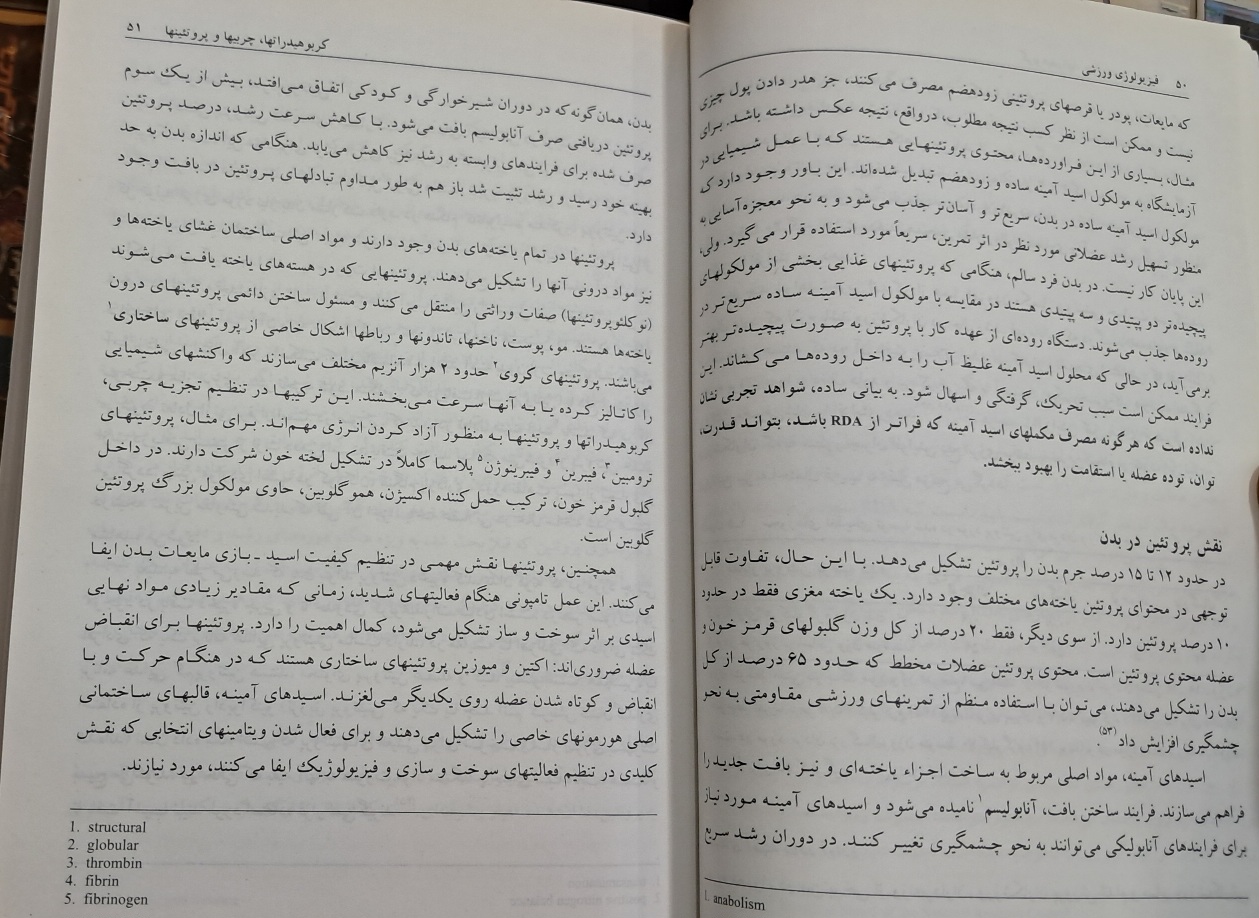 ۵۰ فیزیولوژی ورزشی
که مایعات، پودر یا قرصهای پروتئینی زودهضم مصرف می‌کنند، جز هدر دادن پول چیزی
نیست و ممکن است از نظر کسب نتیجه مطلوب، درواقع، نتیجه عکس داشته باشد. برای
مثال، بسیاری از این فراورده‌ها، محتوی پروتئینهایی هستند که با عمل شیمیایی در
آزمایشگاه به مولکول اسید آمینه ساده و زودهضم تبدیل شده‌اند. این باور وجود دارد که
مولکول اسید آمینه ساده در بدن، سریع‌تر و آسان‌تر جذب می‌شود و به نحو معجزه‌آسایی به
منظور تسهیل رشد عضلانی مورد نظر در اثر تمرین، سریعاً مورد استفاده قرار می‌گیرد. ولی،
این پایان کار نیست. در بدن فرد سالم، هنگامی که پروتئینهای غذایی بخشی از مولکولهای
پیچیده‌تر دو پپتیدی و سه پپتیدی هستند در مقایسه با مولکول اسید آمینه ساده سریع‌تر در
روده‌ها جذب می‌شوند. دستگاه روده‌ای از عهده کار با پروتئین به صورت پیچیده‌تر بهتر
برمی‌آید، در حالی که محلول اسید آمینه غلیظ آب را به داخل روده‌ها می‌کشاند. این
فرایند ممکن است سبب تحریک، گرفتگی و اسهال شود. به بیانی ساده، شواهد تجربی نشان
نداده است که هرگونه مصرف مکملهای اسید آمینه که فراتر از RDA باشد، بتواند قدرت،
توان، توده عضله یا استقامت را بهبود ببخشد.
نقش پروتئین در بدن
در حدود ۱۲ تا ۱۵ درصد جرم بدن را پروتئین تشکیل می‌دهد. با این حال، تفاوت قابل
توجهی در محتوای پروتئین یاخته‌های مختلف وجود دارد. یک یاخته مغزی فقط در حدود
۱۰ درصد پروتئین دارد. از سوی دیگر، فقط ۲۰ درصد از کل وزن گلبولهای قرمز خون و
عضله محتوی پروتئین است. محتوی پروتئین عضلات مخطط که حدود ۶۵ درصد از کل
بدن را تشکیل می‌دهند، می‌توان با استفاده منظم از تمرینهای ورزشی مقاومتی به نحو
چشمگیری افزایش داد(۵۳).
اسیدهای آمینه، مواد اصلی مربوط به ساخت اجزاء یاخته‌ای و نیز بافت جدید را
فراهم می‌سازند. فرایند ساختن بافت، آنابولیسم۱ نامیده می‌شود و اسیدهای آمینه مورد نیاز
برای فرایندهای آنابولیکی می‌توانند به نحو چشمگیری تغییر کنند. در دوران رشد سریع
1. anabolism
کربوهیدراتها، چربیها و پروتئینها ۵۱
بدن، همان‌گونه که در دوران شیرخوارگی و کودکی اتفاق می‌افتد، بیش از یک سوم
پروتئین دریافتی صرف آنابولیسم بافت می‌شود. با کاهش سرعت رشد، درصد پروتئین
صرف شده برای فرایندهای وابسته به رشد نیز کاهش می‌یابد. هنگامی که اندازه بدن به حد
بهینه خود رسید و رشد تثبیت شد باز هم به طور مداوم تبادلهای پروتئین در بافت وجود
دارد.
پروتئینها در تمام یاخته‌های بدن وجود دارند و مواد اصلی ساختمان غشای یاخته‌ها و
نیز مواد درونی آنها را تشکیل می‌دهند. پروتئینهایی که در هسته‌های یاخته یافت می‌شوند
(نوکلئوپروتئینها) صفات وراثتی را منتقل می‌کنند و مسئول ساختن دائمی پروتئینهای درون
یاخته‌ها هستند. مو، پوست، ناخنها، تاندونها و رباطها اشکال خاصی از پروتئینهای ساختاری۱
می‌باشند. پروتئینهای کروی۲ حدود ۲ هزار آنزیم مختلف می‌سازند که واکنشهای شیمیایی
را کاتالیز کرده یا به آنها سرعت می‌بخشند. این ترکیبها در تنظیم تجزیه چربی،
کربوهیدراتها و پروتئینها به منظور آزاد کردن انرژی مهم‌اند. برای مثال، پروتئینهای
ترومبین۳، فیبرین۴ و فیبرینوژن۵ پلاسما کاملاً در تشکیل لخته خون شرکت دارند. در داخل
گلبول قرمز خون، ترکیب حمل‌کننده اکسیژن، هموگلوبین، حاوی مولکول بزرگ پروتئین
گلوبین است.
همچنین، پروتئینها نقش مهمی در تنظیم کیفیت اسید ـ بازی مایعات بدن ایفا
می‌کنند. این عمل تامپونی هنگام فعالیتهای شدید، زمانی که مقادیر زیادی مواد نهایی
اسیدی بر اثر سوخت و ساز تشکیل می‌شود، کمال اهمیت را دارد. پروتئینها برای انقباض
عضله ضروری‌اند: اکتین و میوزین پروتئینهای ساختاری هستند که در هنگام حرکت و با
انقباض و کوتاه شدن عضله روی یکدیگر می‌لغزند. اسیدهای آمینه، قالبهای ساختمانی
اصلی هورمونهای خاصی را تشکیل می‌دهند و برای فعال شدن ویتامینهای انتخابی که نقش
کلیدی در تنظیم فعالیتهای سوخت و سازی و فیزیولوژیک ایفا می‌کنند، مورد نیازند.
1. structural
2. globular
3. thrombin
4. fibrin
5. fibrinogen